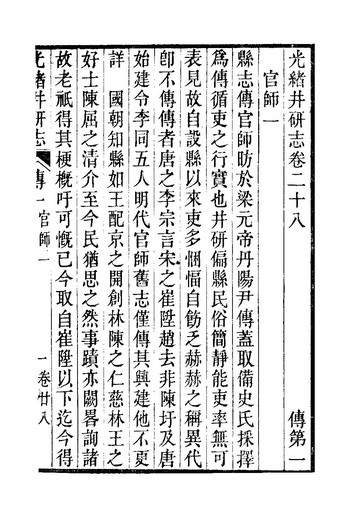 光緒井研志卷二十八　傳第一
官師一
縣志傳官師昉於梁元帝丹陽尹傳蓋取備史氏採擇
爲傳循吏之行實也井研偏縣民俗簡靜能吏率無可
表見故自設縣以來吏多悃愊自飭乏赫赫之稱異代
卽不傳傳者唐之李宗言宋之崔陞趙去非陳圩及唐
始建令李同五人明代官師舊志僅傳其興建他不更
詳　國朝知縣如王配京之開創林陳之仁慈林王之
好士陳屈之清介至今民猶思之然事蹟亦闕畧詢諸
故老祇得其梗概吁可慨已今取自崔陞以下迄今得
光緒井研志　傳一官師一　一　卷廿八